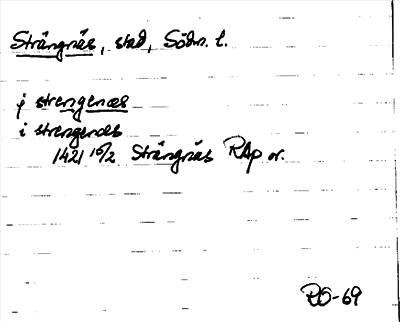 Strängnäs, stad, Södm. l.
j strengenæs
i strengenæs
1421 16/2 Strängnäs RAp or.
RO-69